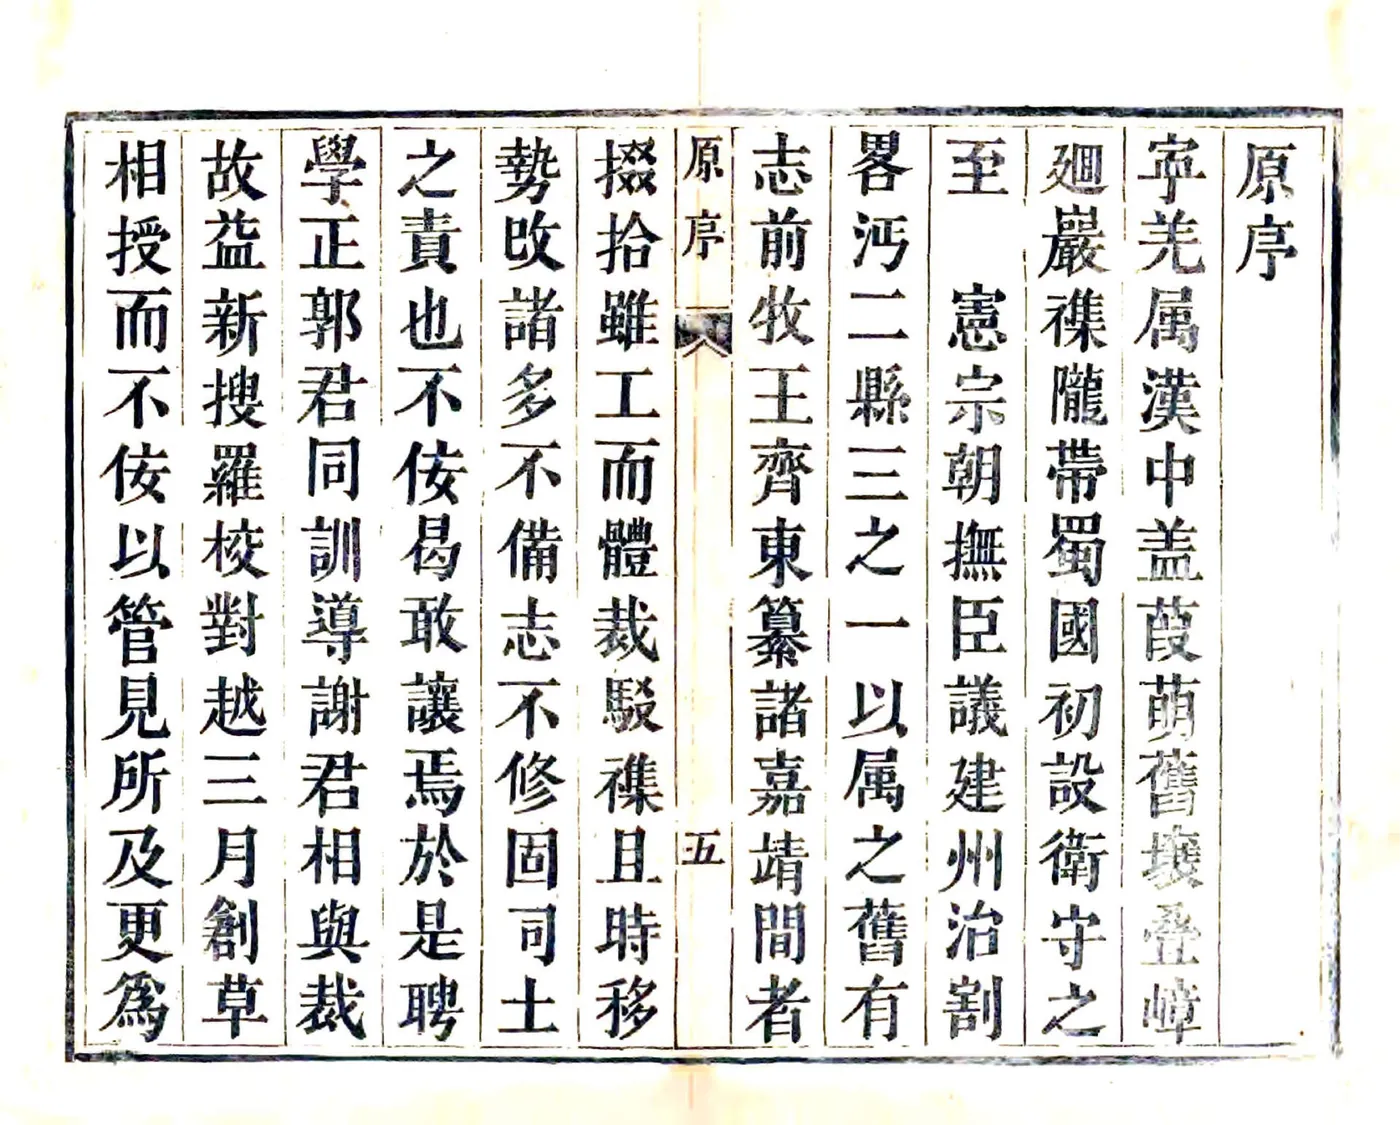 原序
寜羗属漢中盖葭萌舊壤叠嶂
廻巖襍隴帶蜀國初設衛守之
至　憲宗朝撫臣議建州治割
畧沔二縣三之一以属之舊有
志前牧王齊東纂諸嘉靖間者
原序
五
掇拾雖工而體裁駁襍且時移
勢改諸多不備志不修固司土
之責也不佞曷敢讓焉於是聘
學正郭君同訓導謝君相與裁
故益新搜羅校對越三月創草
相授而不佞以管見所及更爲